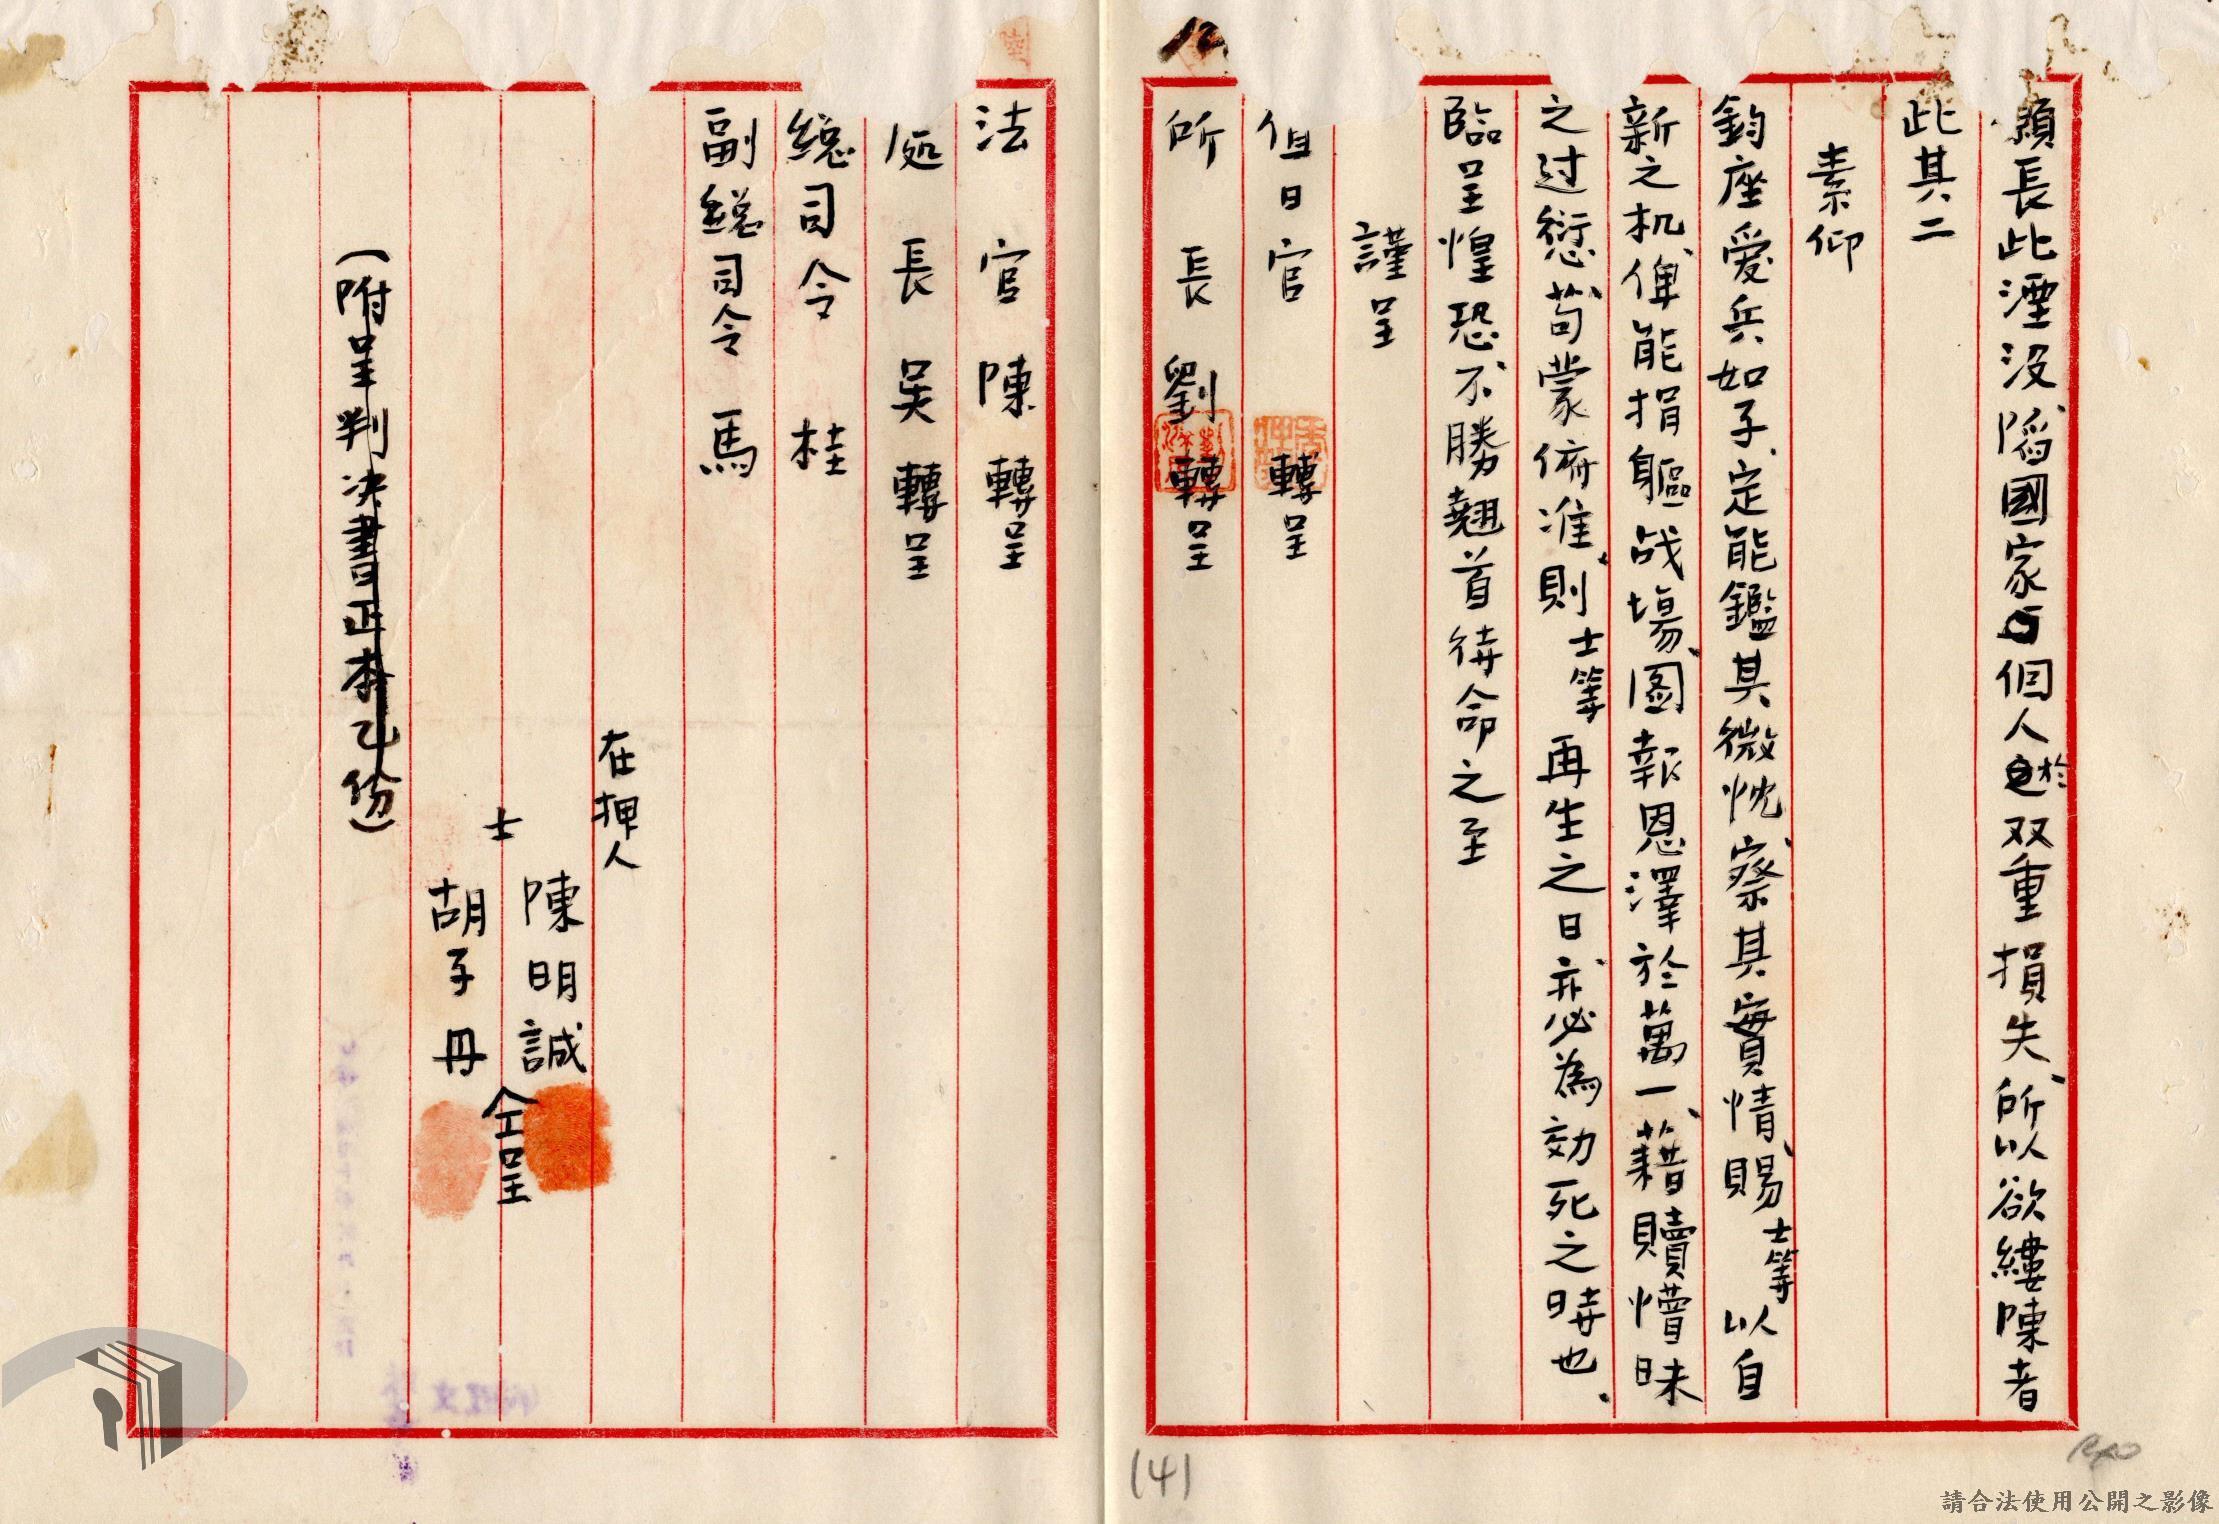 願長此湮沒、陷國家与個人於双重損失、所以欲縷陳者
此其二
素仰
鈞座愛兵如子、定能鑑其微忱、察其實情、賜士等以自
新之机、俾能捐軀战場、图報恩澤於萬一、藉贖懵昧
之过愆、苟蒙俯准、則士等再生之日、亦必為効死之時也、
臨呈惶恐、不勝翹首待命之至
謹呈
值日官 轉呈
所長劉 轉呈
法官陳 轉呈
処長吴 轉呈
總司令桂
副總司令馬
在押人
士
陳明誠
胡子丹
仝呈
(附呈判决書正本乙份)
(4)
請合法使用公開之影像